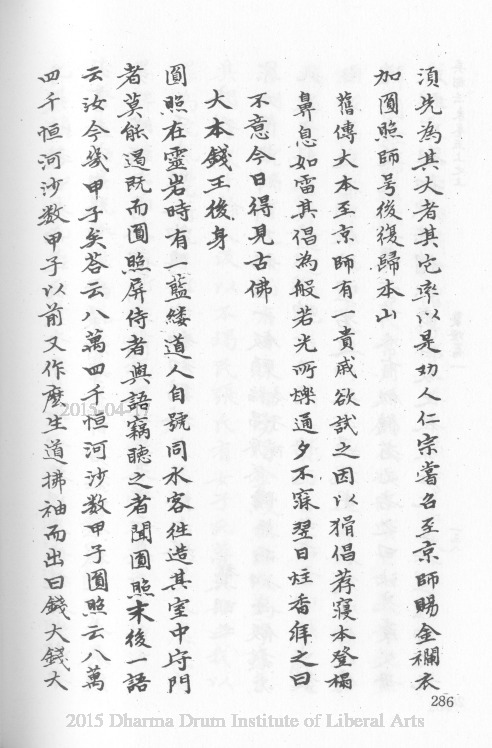 須先為其大者其它率以是劝人仁宗嘗召至京師賜金襴衣
加圓照師号後復歸本山
舊傳大本至京師有一貴戚欲試之因以猾倡荐寢本登榻
鼻息如雷其倡為般若光所爍通夕不寐翌日炷香拜之曰
不意今日得見古佛
大本錢王後身
圓照在靈岩時有一藍縷道人自號同水客徃造其室中守門
者莫能遏既而圓照屏侍者與語竊聽之者聞圓照末後一語
云汝今幾甲子矣荅云八萬四千恒河沙数甲子圓照云八萬
四千恒河沙数甲子以前又作麽生道拂袖而出曰錢大錢大
286
2015-04-17
2015 Dharma Drum Institute of Liberal Arts